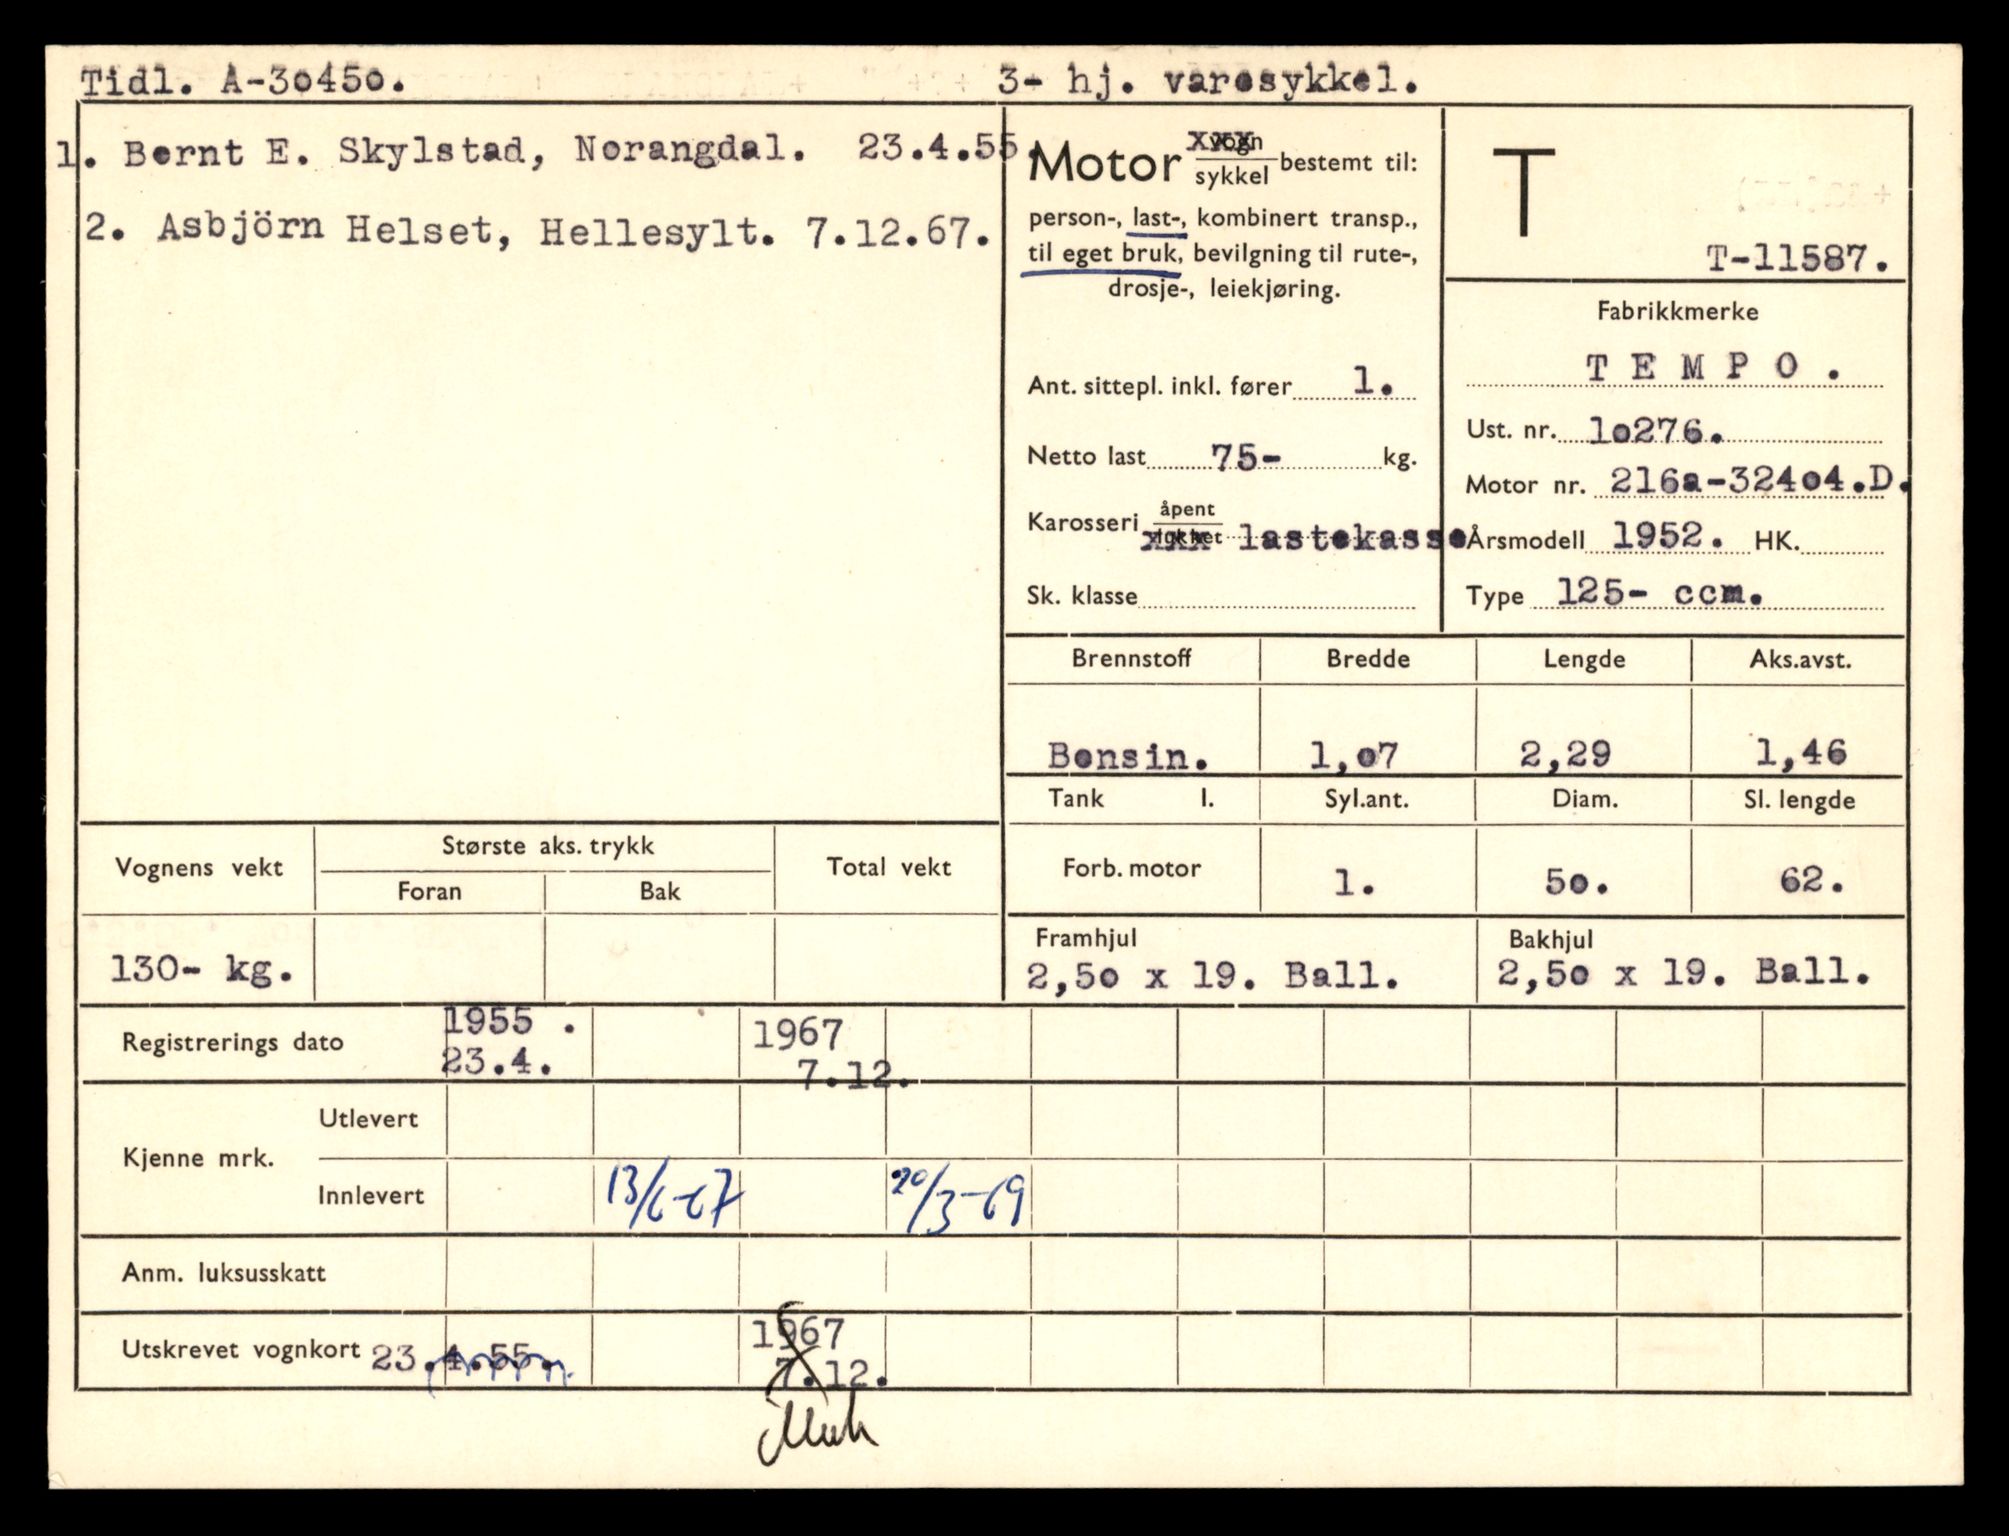 Tidl. A-30450. 3- hj. varesykkel.
1. Bernt E. Skylstad, Norangdal. 23.4.55.
2. Asbjörn Helset, Hellesylt. 7.12.67.
Motor vogn
sykkel bestemt til:
person-, last-, kombinert transp.,
til eget bruk, bevilgning til rute-,
drosje-, leiekjøring.
Ant. sittepl. inkl. fører 1.
Netto last 75- kg.
Karosseri åpent
lukket lastekasse
Sk. klasse
T
T-11587.
Fabrikkmerke
TEMPO.
Ust. nr. 10276.
Motor nr. 216a-32404.D.
Årsmodell 1952. HK.
Type 125- ccm.
Brennstoff Bredde Lengde Aks.avst.
Bensin. 1,07 2,29 1,46
Tank l. Syl.ant. Diam. Sl. lengde
Forb. motor 1. 50. 62.
Framhjul Bakhjul
2,50 x 19. Ball. 2,50 x 19. Ball.
Vognens vekt Største aks. trykk Total vekt
Foran Bak
130- kg.
Registrerings dato 1955 . 1967
23.4. 7.12.
Kjenne mrk. Utlevert
Innlevert 13/6-67 20/3-69
Anm. luksusskatt
Utskrevet vognkort 23.4.55. 1967
7.12.